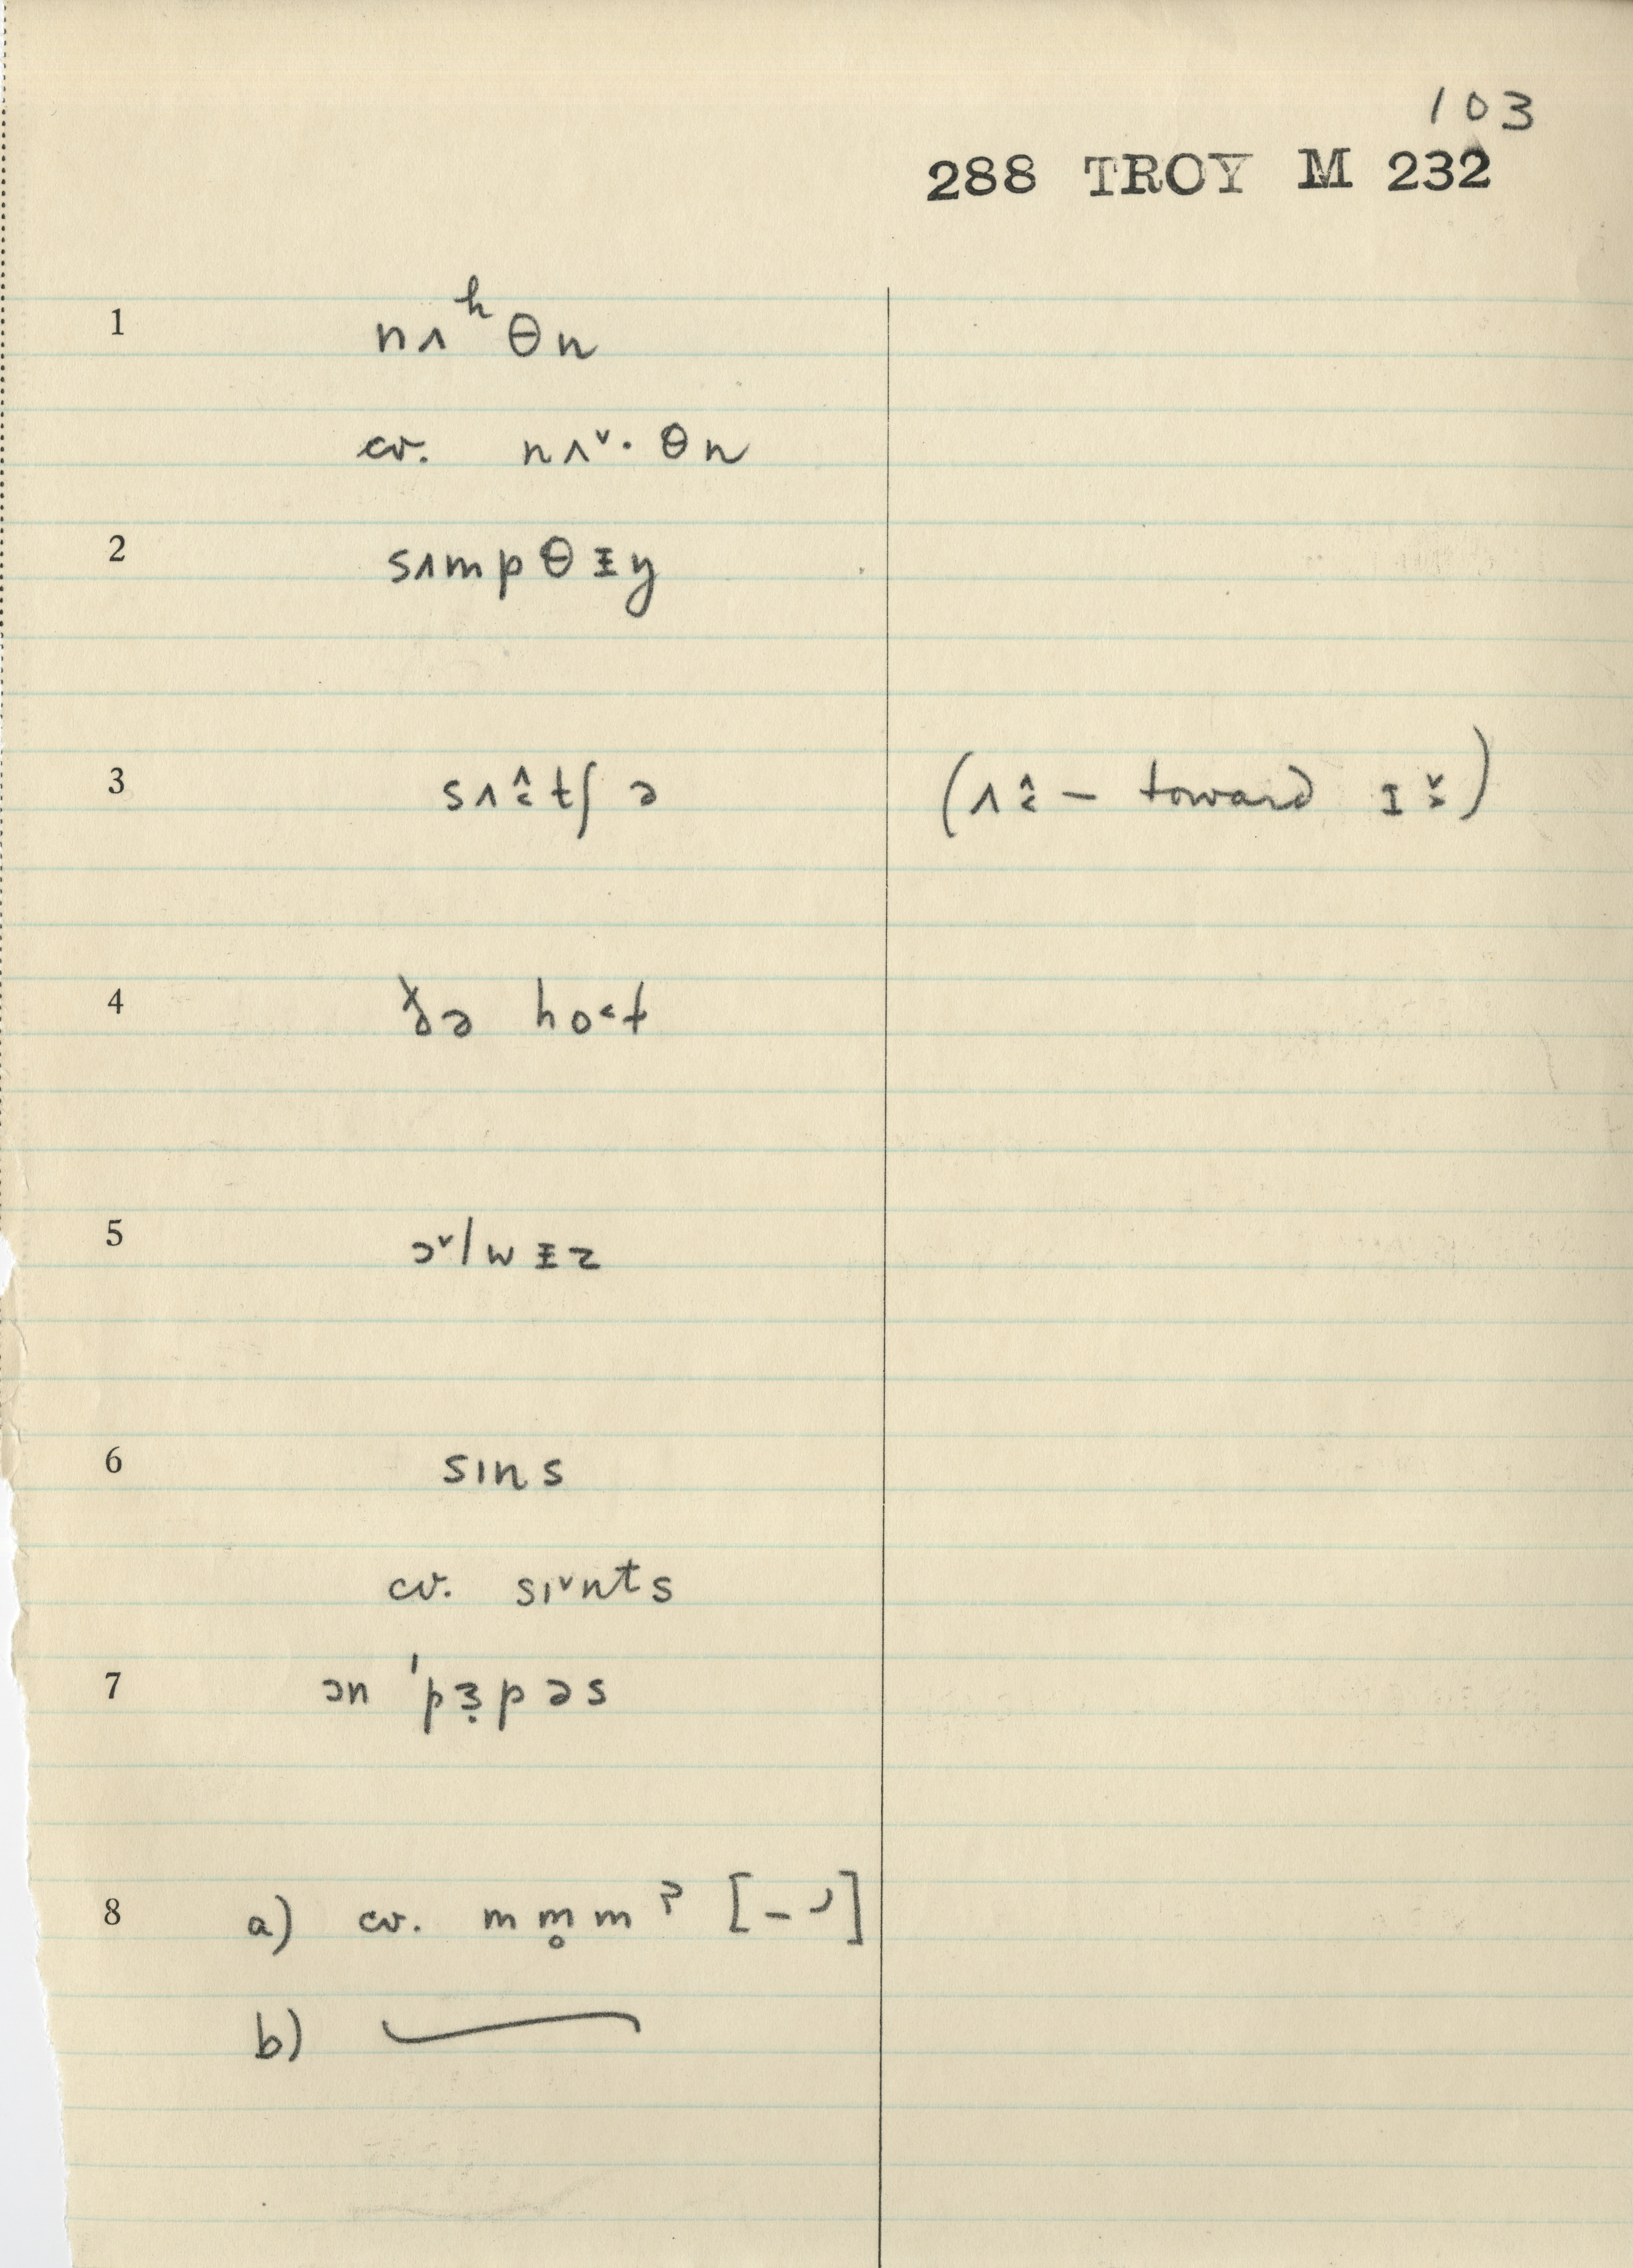 103
288 TROY M 232
1 nʌʰθn
cv. nʌ˅·θn
2 sʌmpθᵻy
3 sʌ˂̂tʃə (ʌ˂̂ – toward ɪ˃̌)
4 ðə ho˂t
5 ɔ˅lwᵻz
6 sɪns
cv. sɪ˅nᵗs
7 ən ˈpɜ̣pəs
8 a) cv. mm̥mˀ [–╯]
b)